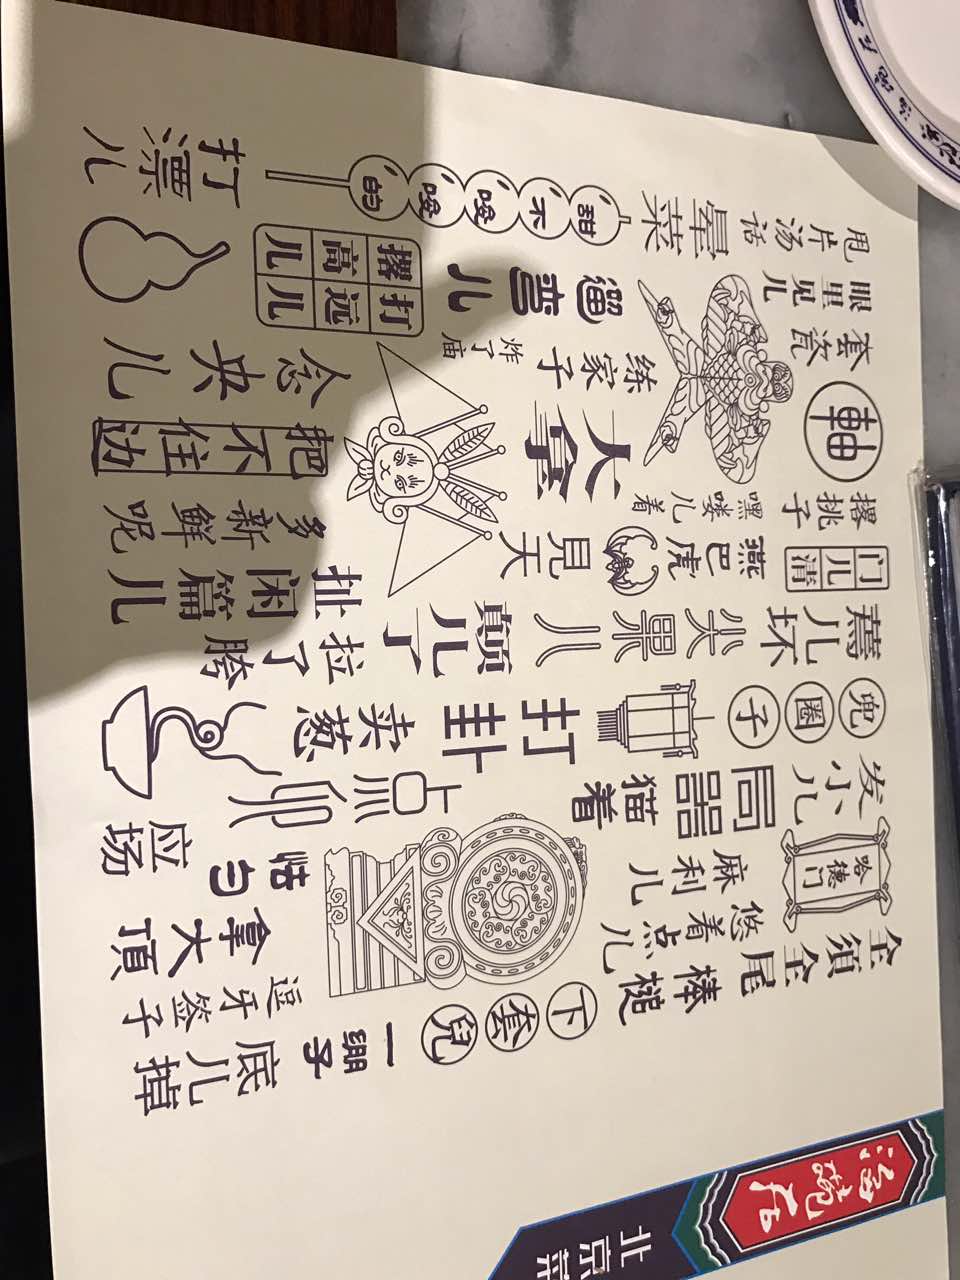 甩片汤话
暈菜
甜不嗖嗖的
打漂儿
眼里见儿
遛弯儿
撂高儿
打远儿
套瓷
练家子
炸了庙
念央儿
軸
大拿
把不住边
撂挑子
嘿喽儿着
多新鲜呢
门儿清
燕巴虎
見天
扯闲篇儿
蔫儿坏
尖果儿
颠儿了
拉了胯
兜圈子
打卦
卖葱
发小儿
局器
猫着
点卯
应场
哈德门
麻利儿
悠着点儿
拿大頂
全須全尾
棒槌
逗牙签子
下套兒
一绷子
底儿掉
海碗居
北京